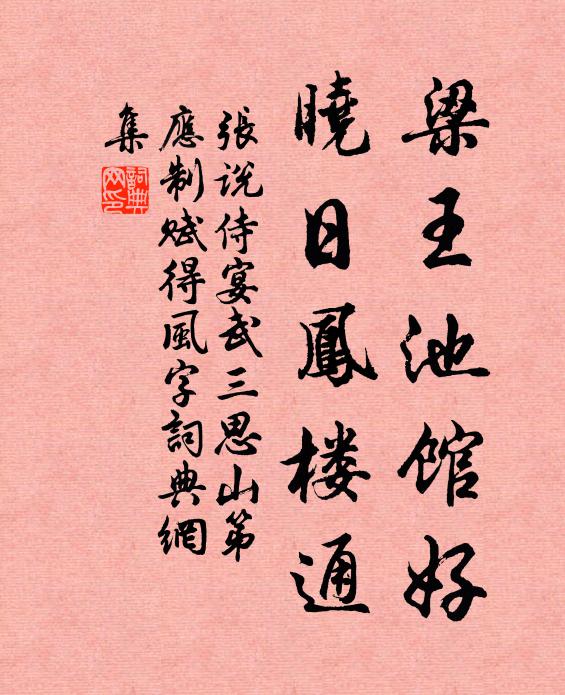 梁王池馆好
曉日鳳楼通
張说侍宴武三思山第
應制赋得風字詞典網
集
詞典网印